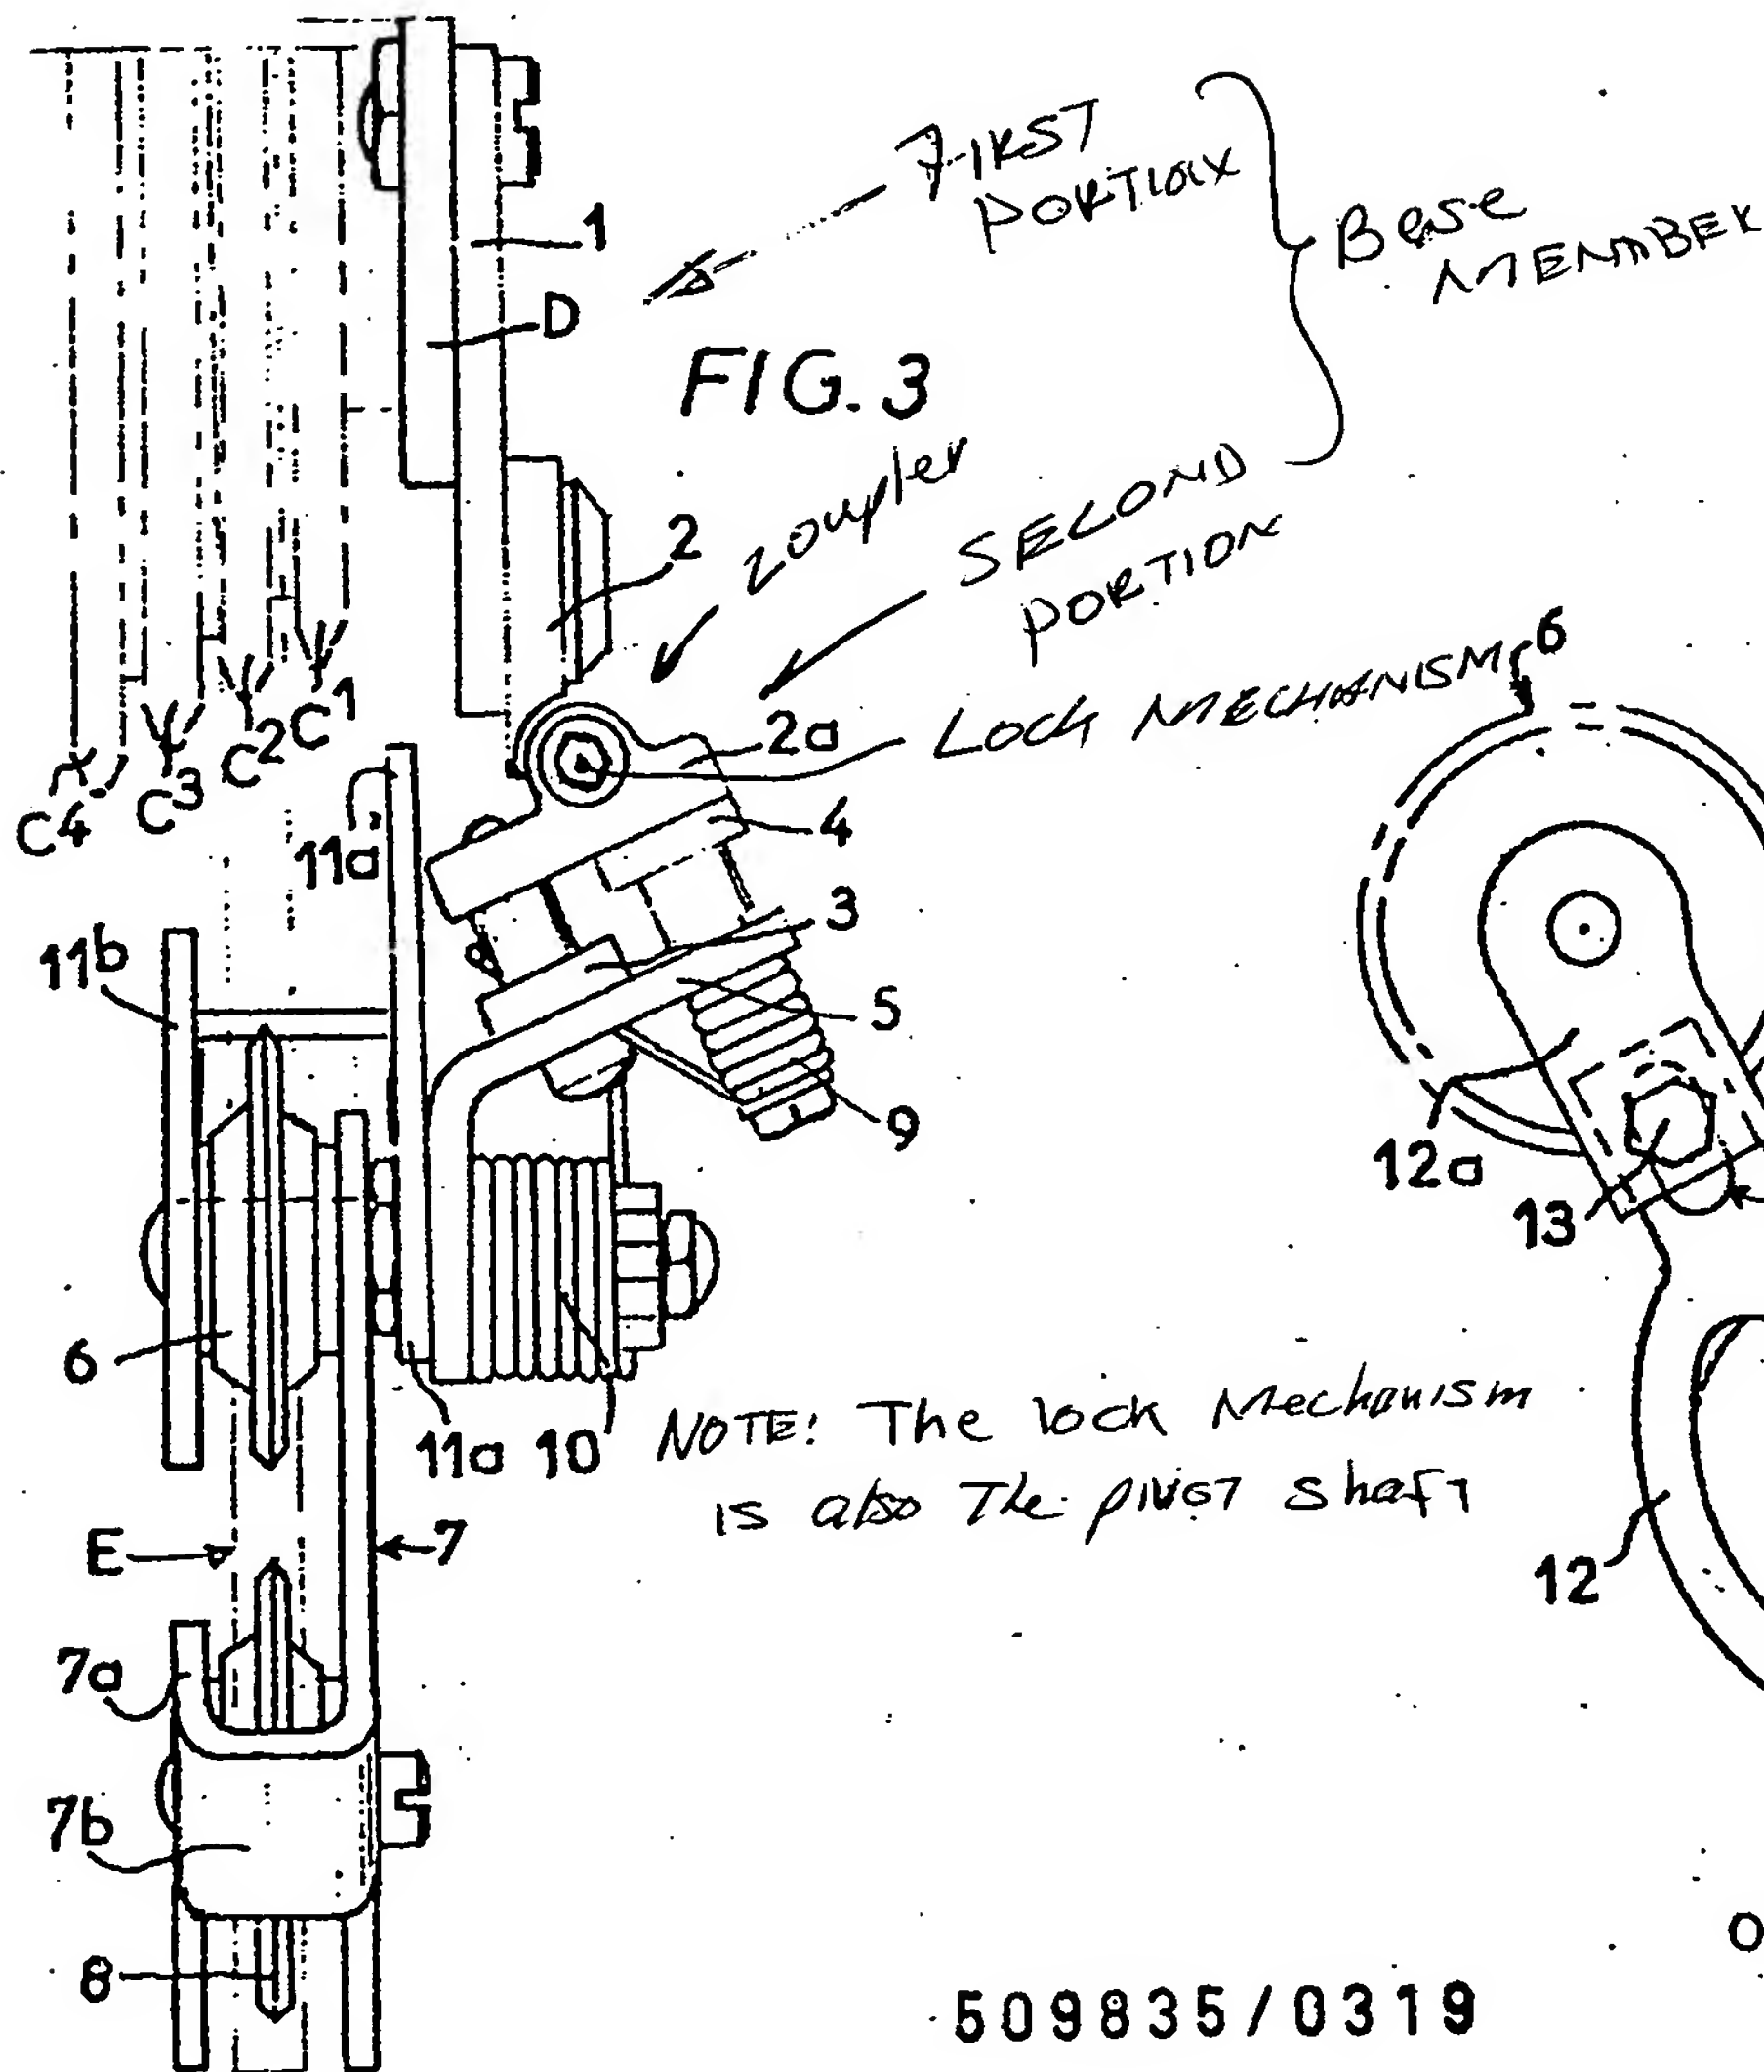 FIRST
PORTION
Base
MEMBER
1
D
FIG. 3
coupler
SECOND
PORTION
2
LOCK MECHANISM
6
2a
C1
C2
C3
C4
11a
4
3
11b
5
9
12a
13
6
11a
10
NOTE: The lock Mechanism
is also The pivot shaft
E
7
12
7a
7b
8
509835/0319